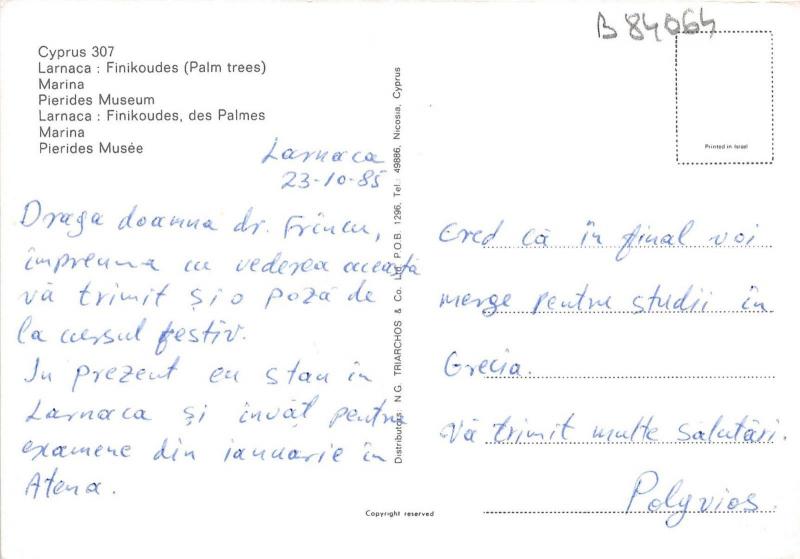 B 84064
Cyprus 307
Larnaca : Finikoudes (Palm trees)
Marina
Pierides Museum
Larnaca : Finikoudes, des Palmes
Marina
Pierides Musée
Larnaca
23-10-85
Draga doamna dr. Frîncu,
împreuna cu vederea aceasta
vă trimit și o poză de
la cursul festiv.
In prezent eu stau in
Larnaca și învăț pentru
examene din ianuarie in
Atena.
Distributors: N.G. TRIARCHOS & Co. Ltd. P.O.B. 1296, Tel.: 49886, Nicosia, Cyprus
Copyright reserved
Printed in Israel
Cred că în final voi
merge pentru studii in
Grecia.
Vă trimit multe salutări.
Polyvios.